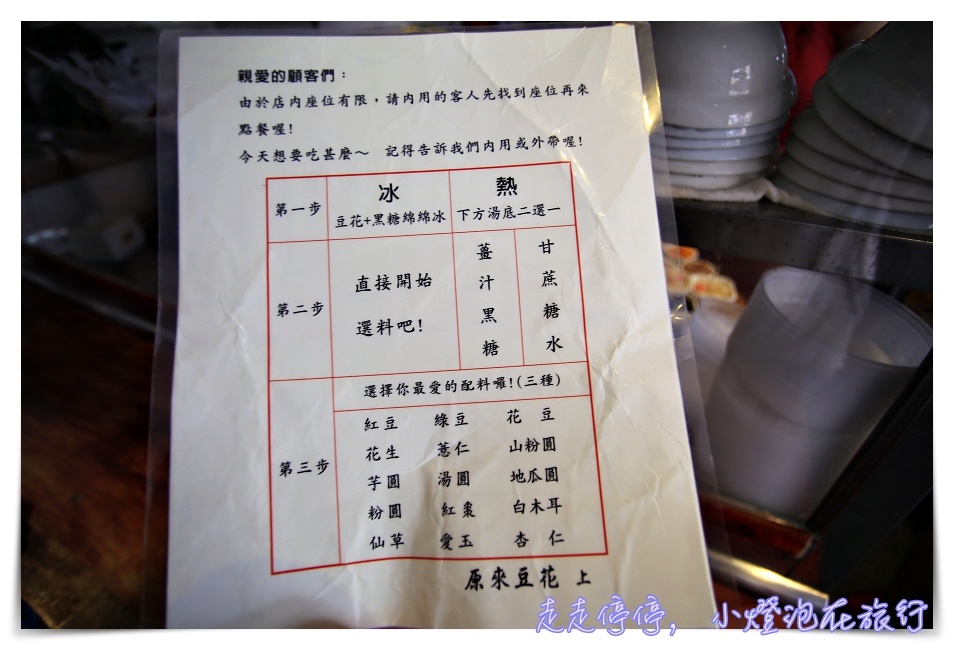 親愛的顧客們：
由於店內座位有限，請內用的客人先找到座位再來
點餐喔！
今天想要吃甚麼～ 記得告訴我們內用或外帶喔！
第一步
冰
豆花+黑糖綿綿冰
熱
下方湯底二選一
第二步
直接開始
選料吧！
薑汁黑糖
甘蔗糖水
第三步
選擇你最愛的配料囉！(三種)
紅豆 綠豆 花豆
花生 薏仁 山粉圓
芋圓 湯圓 地瓜圓
粉圓 紅棗 白木耳
仙草 愛玉 杏仁
原來豆花 上
走走停停， 小燈泡在旅行